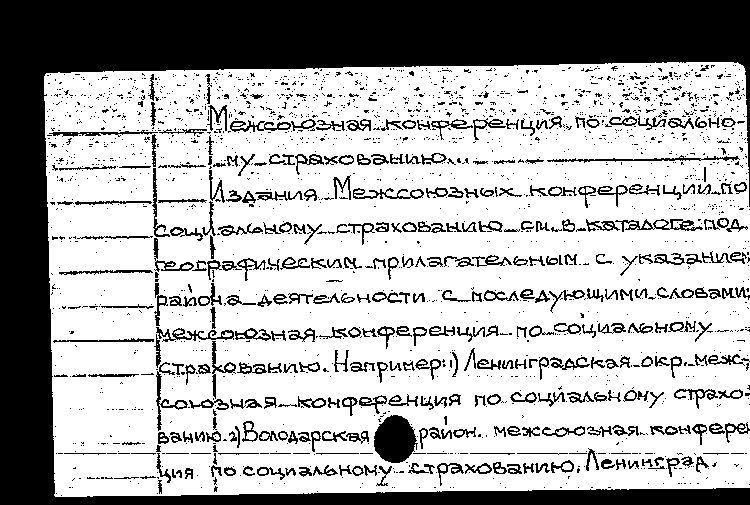 Межсоюзная конференция по социально-
му страхованию...
Издания Межсоюзных конференций по
социальному страхованию см. в каталоге под
географическим прилагательным с указанием
района деятельности с последующими словами:
межсоюзная конференция по социальному
страхованию. Например: 1) Ленинградская окр. меж-
союзная конференция по социальному страхо-
ванию. 2) Володарская район. межсоюзная конферен
ция по социальному страхованию. Ленинград.